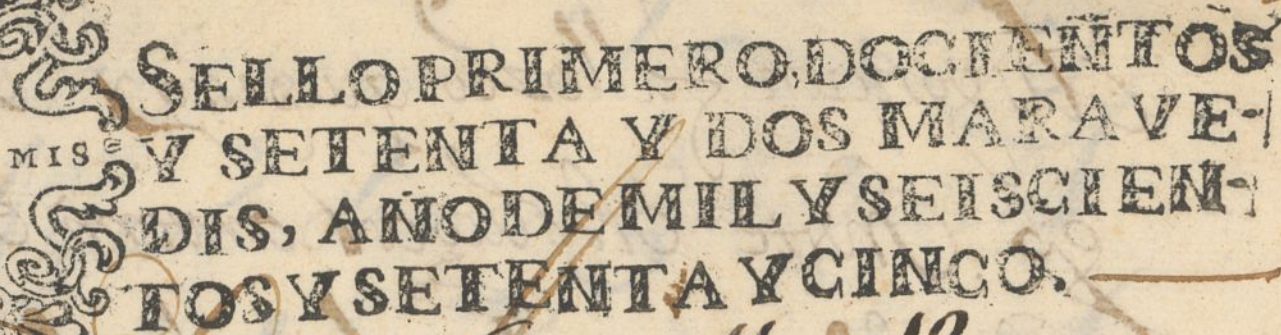 SELLO PRIMERO, DOCIENTOS
Y SETENTA Y DOS MARAVE-
MIS
DIS, AÑO DE MIL Y SEISCIEN-
TOS Y SETENTA Y CINCO.